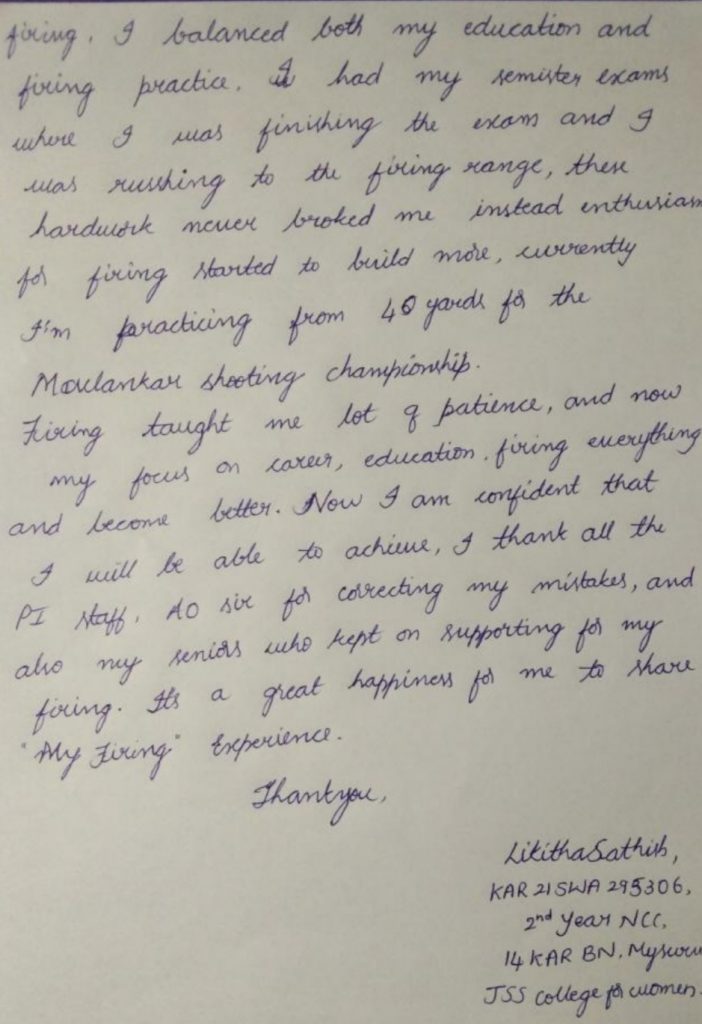 firing. I balanced both my education and
firing practice. I had my semister exams
where I was finishing the exam and I
was russhing to the firing range, these
hardwork never broked me instead enthusiasm
for firing started to build more, currently
I'm practicing from 40 yards for the
Mavlankar shooting championship.
Firing taught me lot of patience, and now
my focus on career, education. firing everything
and become better. Now I am confident that
I will be able to achieve, I thank all the
PI staff, AO sir for correcting my mistakes, and
also my seniors who kept on supporting for my
firing. Its a great happiness for me to share
"My Firing" Experience.
Thankyou,
Likitha Sathish,
KAR 21 SWA 295306,
2nd Year NCC,
14 KAR BN, Mysuru
JSS College for women.